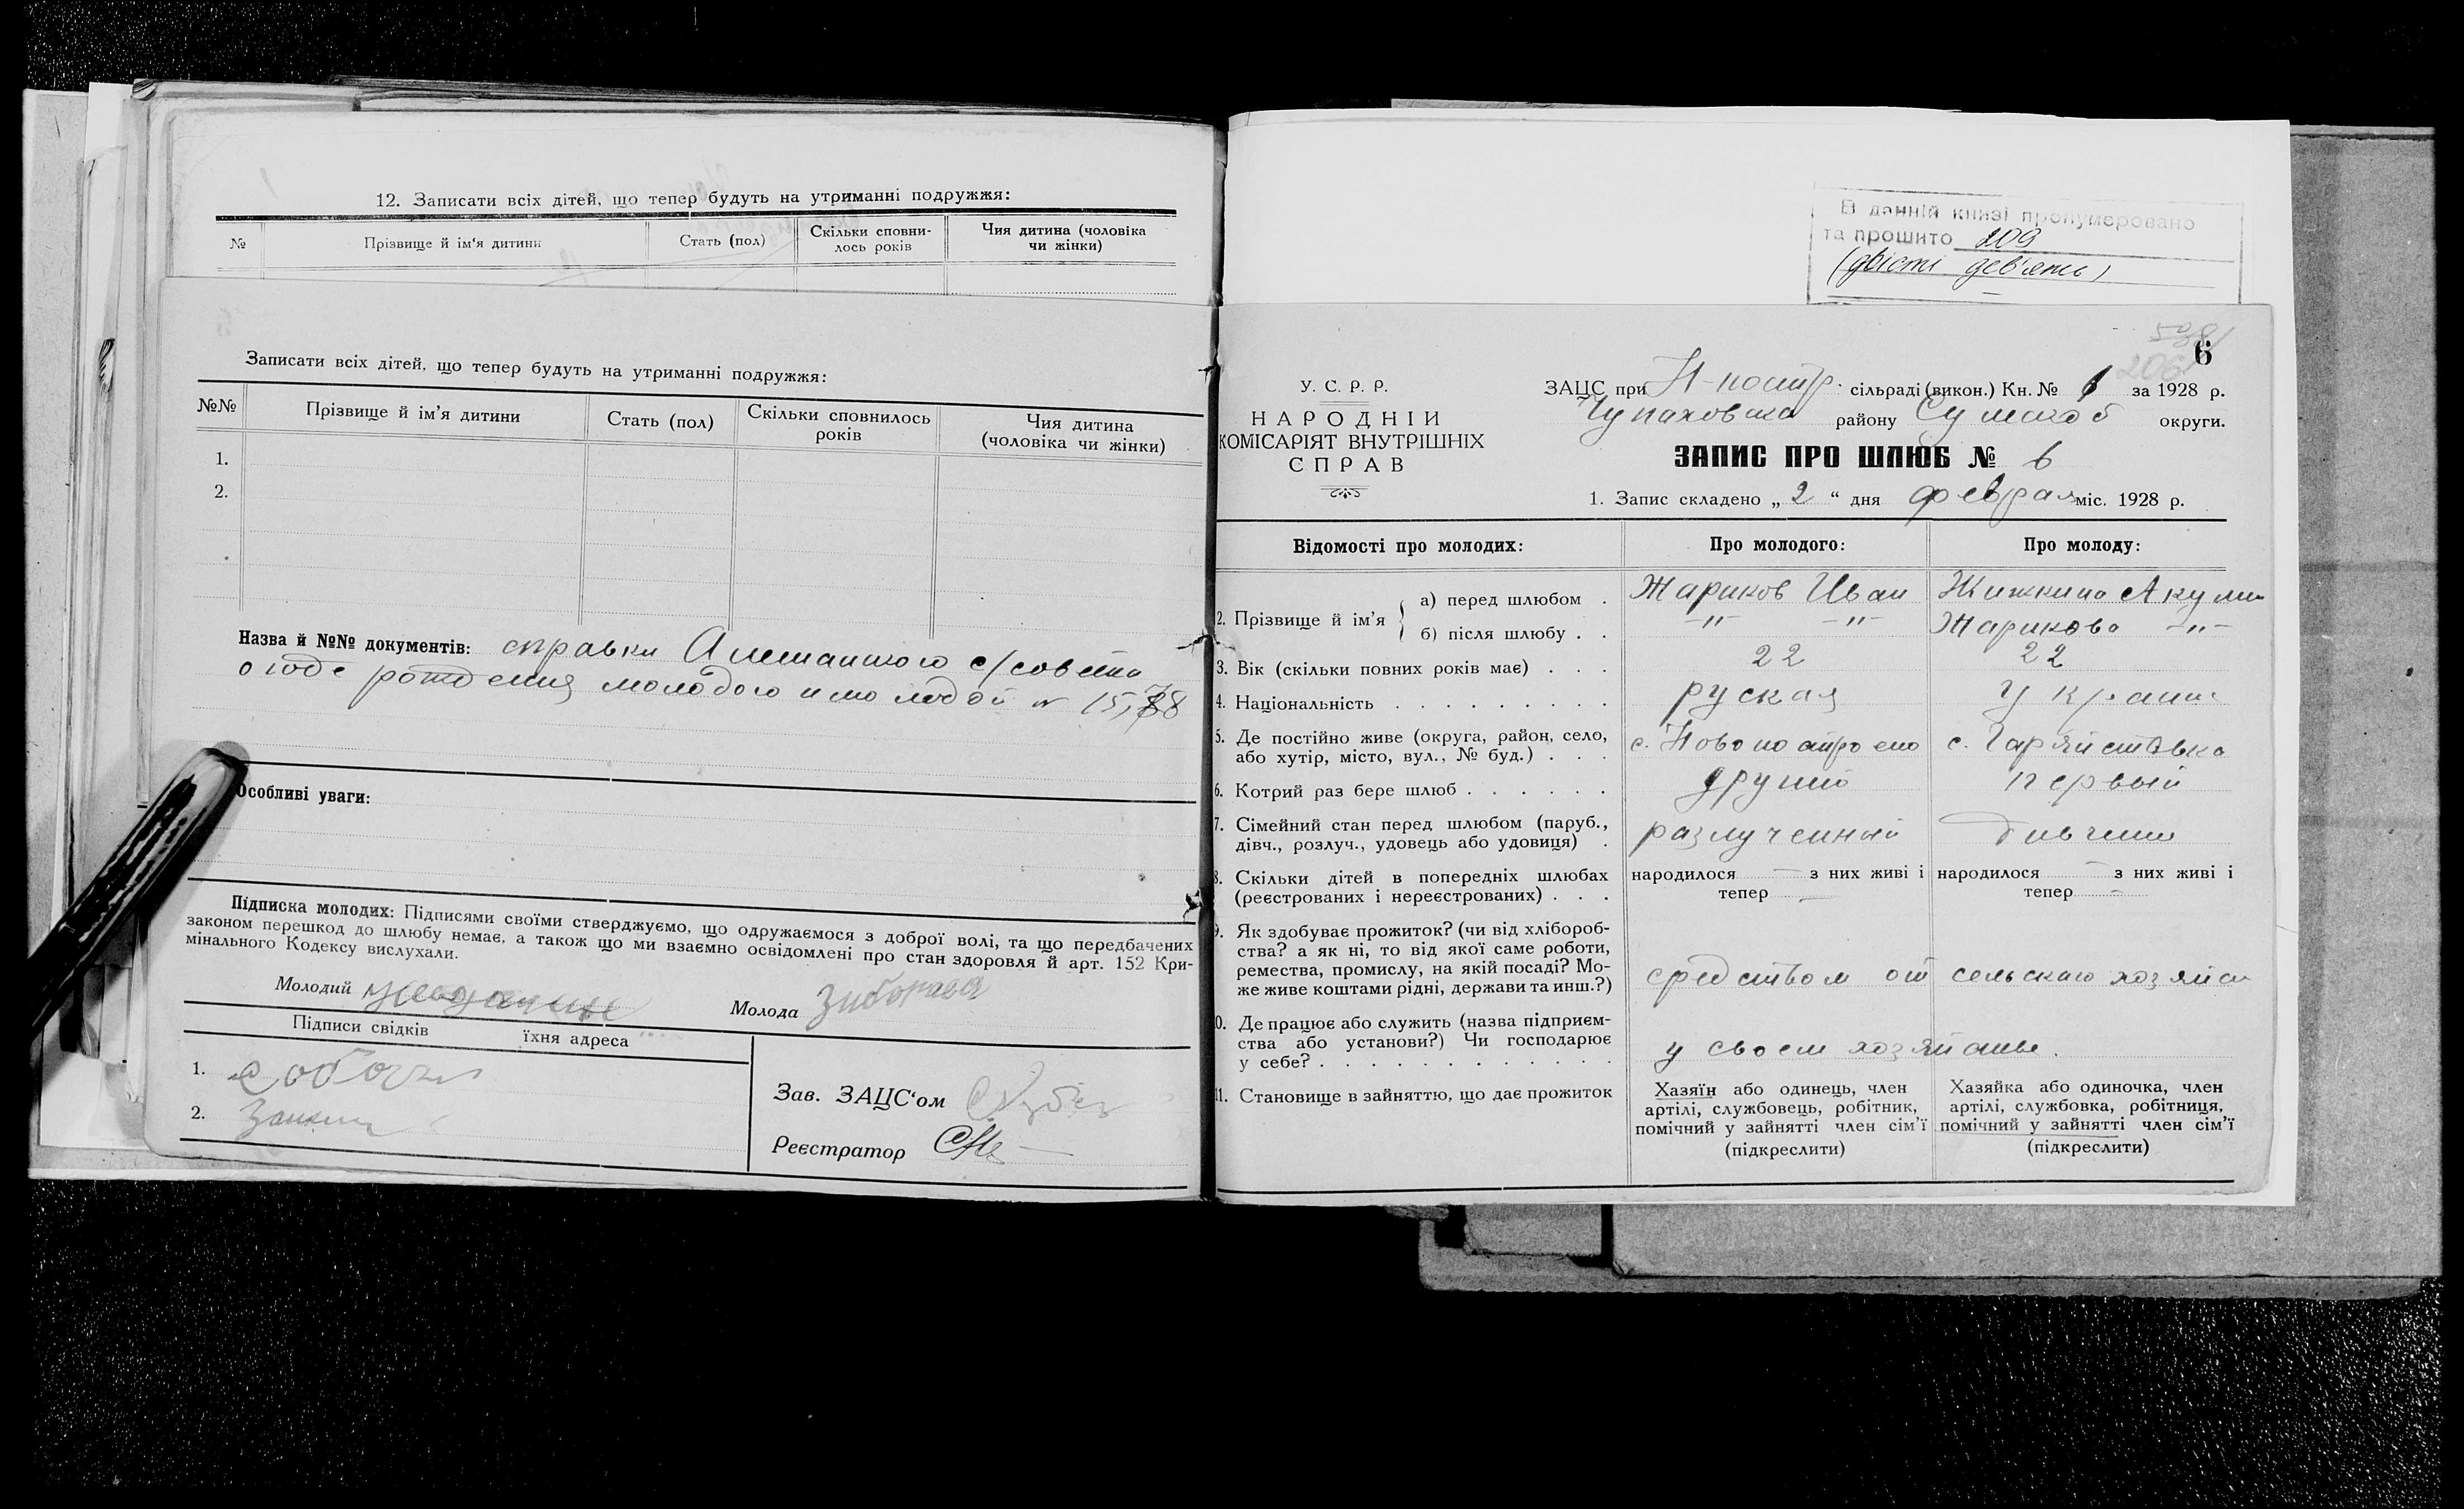 12. Записати всіх дітей, що тепер будуть на утриманні подружжя:
№ Прізвище й ім'я дитини Стать (пол) Скільки сповни-лось років Чия дитина (чоловіка чи жінки)
Записати всіх дітей, що тепер будуть на утриманні подружжя:
№№ Прізвище й ім'я дитини Стать (пол) Скільки сповнилось років Чия дитина (чоловіка чи жінки)
1.
2.
Назва й №№ документів: справки с/совета
о годе рождения молодого и молодой № 15,
Особливі уваги:
Підписка молодих: Підписями своїми стверджуємо, що одружаємося з доброї волі, та що передбачених
законом перешкод до шлюбу немає, а також що ми взаємно освідомлені про стан здоровля й арт. 152 Кри-
мінального Кодексу вислухали.
Молодий Молода
Підписи свідків їхня адреса
1.
2.
Зав. ЗАЦС'ом
Реєстратор
В данній книзі пронумеровано
та прошито 209
(двісті дев'ять)
6
У. С. Р. Р.
НАРОДНІЙ
КОМІСАРІЯТ ВНУТРІШНІХ
СПРАВ
ЗАЦС при Н-постр. сільраді (викон.) Кн. № 1 за 1928 р.
Чупаховска району Сумской округи.
ЗАПИС ПРО ШЛЮБ № 6
1. Запис складено „ 2 “ дня февраля міс. 1928 р.
Відомості про молодих: Про молодого: Про молоду:
2. Прізвище й ім'я а) перед шлюбом . Жариков Иван Жижкина Акулин
б) після шлюбу . . -"- -"- Жарикова -"-
3. Вік (скільки повних років має) . . . 22 22
4. Національність . . . . . . . . . руская украин
5. Де постійно живе (округа, район, село,
або хутір, місто, вул., № буд.) . . . с. Новопостроено с.
6. Котрий раз бере шлюб . . . . . . другий первый
7. Сімейний стан перед шлюбом (паруб.,
дівч., розлуч., удовець або удовиця) . разлученный
8. Скільки дітей в попередніх шлюбах
(реєстрованих і нереєстрованих) . . .
народилося — з них живі і
тепер —
народилося — з них живі і
тепер —
9. Як здобуває прожиток? (чи від хлібороб-
ства? а як ні, то від якої саме роботи,
ремества, промислу, на якій посаді? Мо-
же живе коштами рідні, держави та инш.?)
средством от сельскаго хозяйст
10. Де працює або служить (назва підприєм-
ства або установи?) Чи господарює
у себе? . . . . . . . . . . . .
у своем хозяйстве.
11. Становище в зайняттю, що дає прожиток
Хазяїн або одинець, член
артілі, службовець, робітник,
помічний у зайнятті член сім'ї
(підкреслити)
Хазяйка або одиночка, член
артілі, службовка, робітниця,
помічний у зайнятті член сім'ї
(підкреслити)